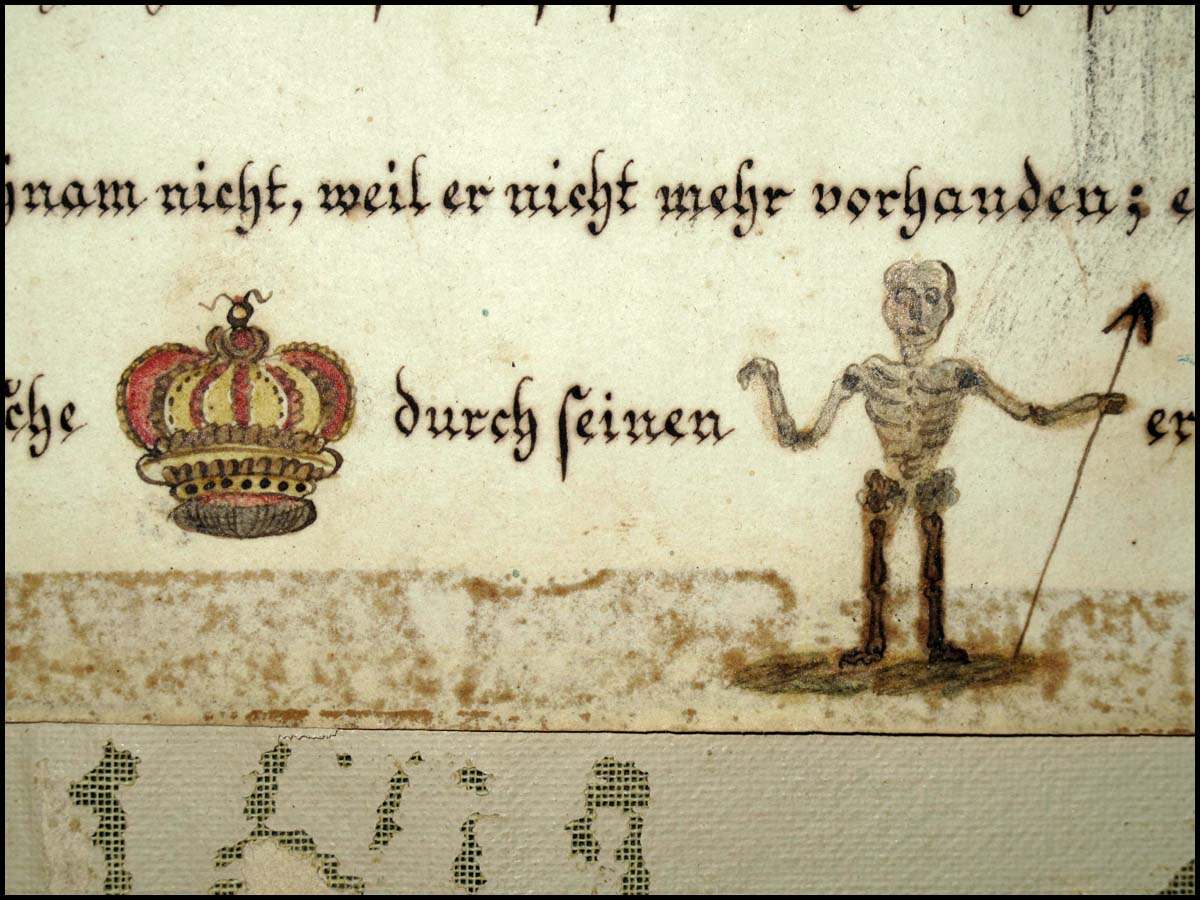 ynam nicht, weil er nicht mehr vorhanden; e
che durch ſeinen er